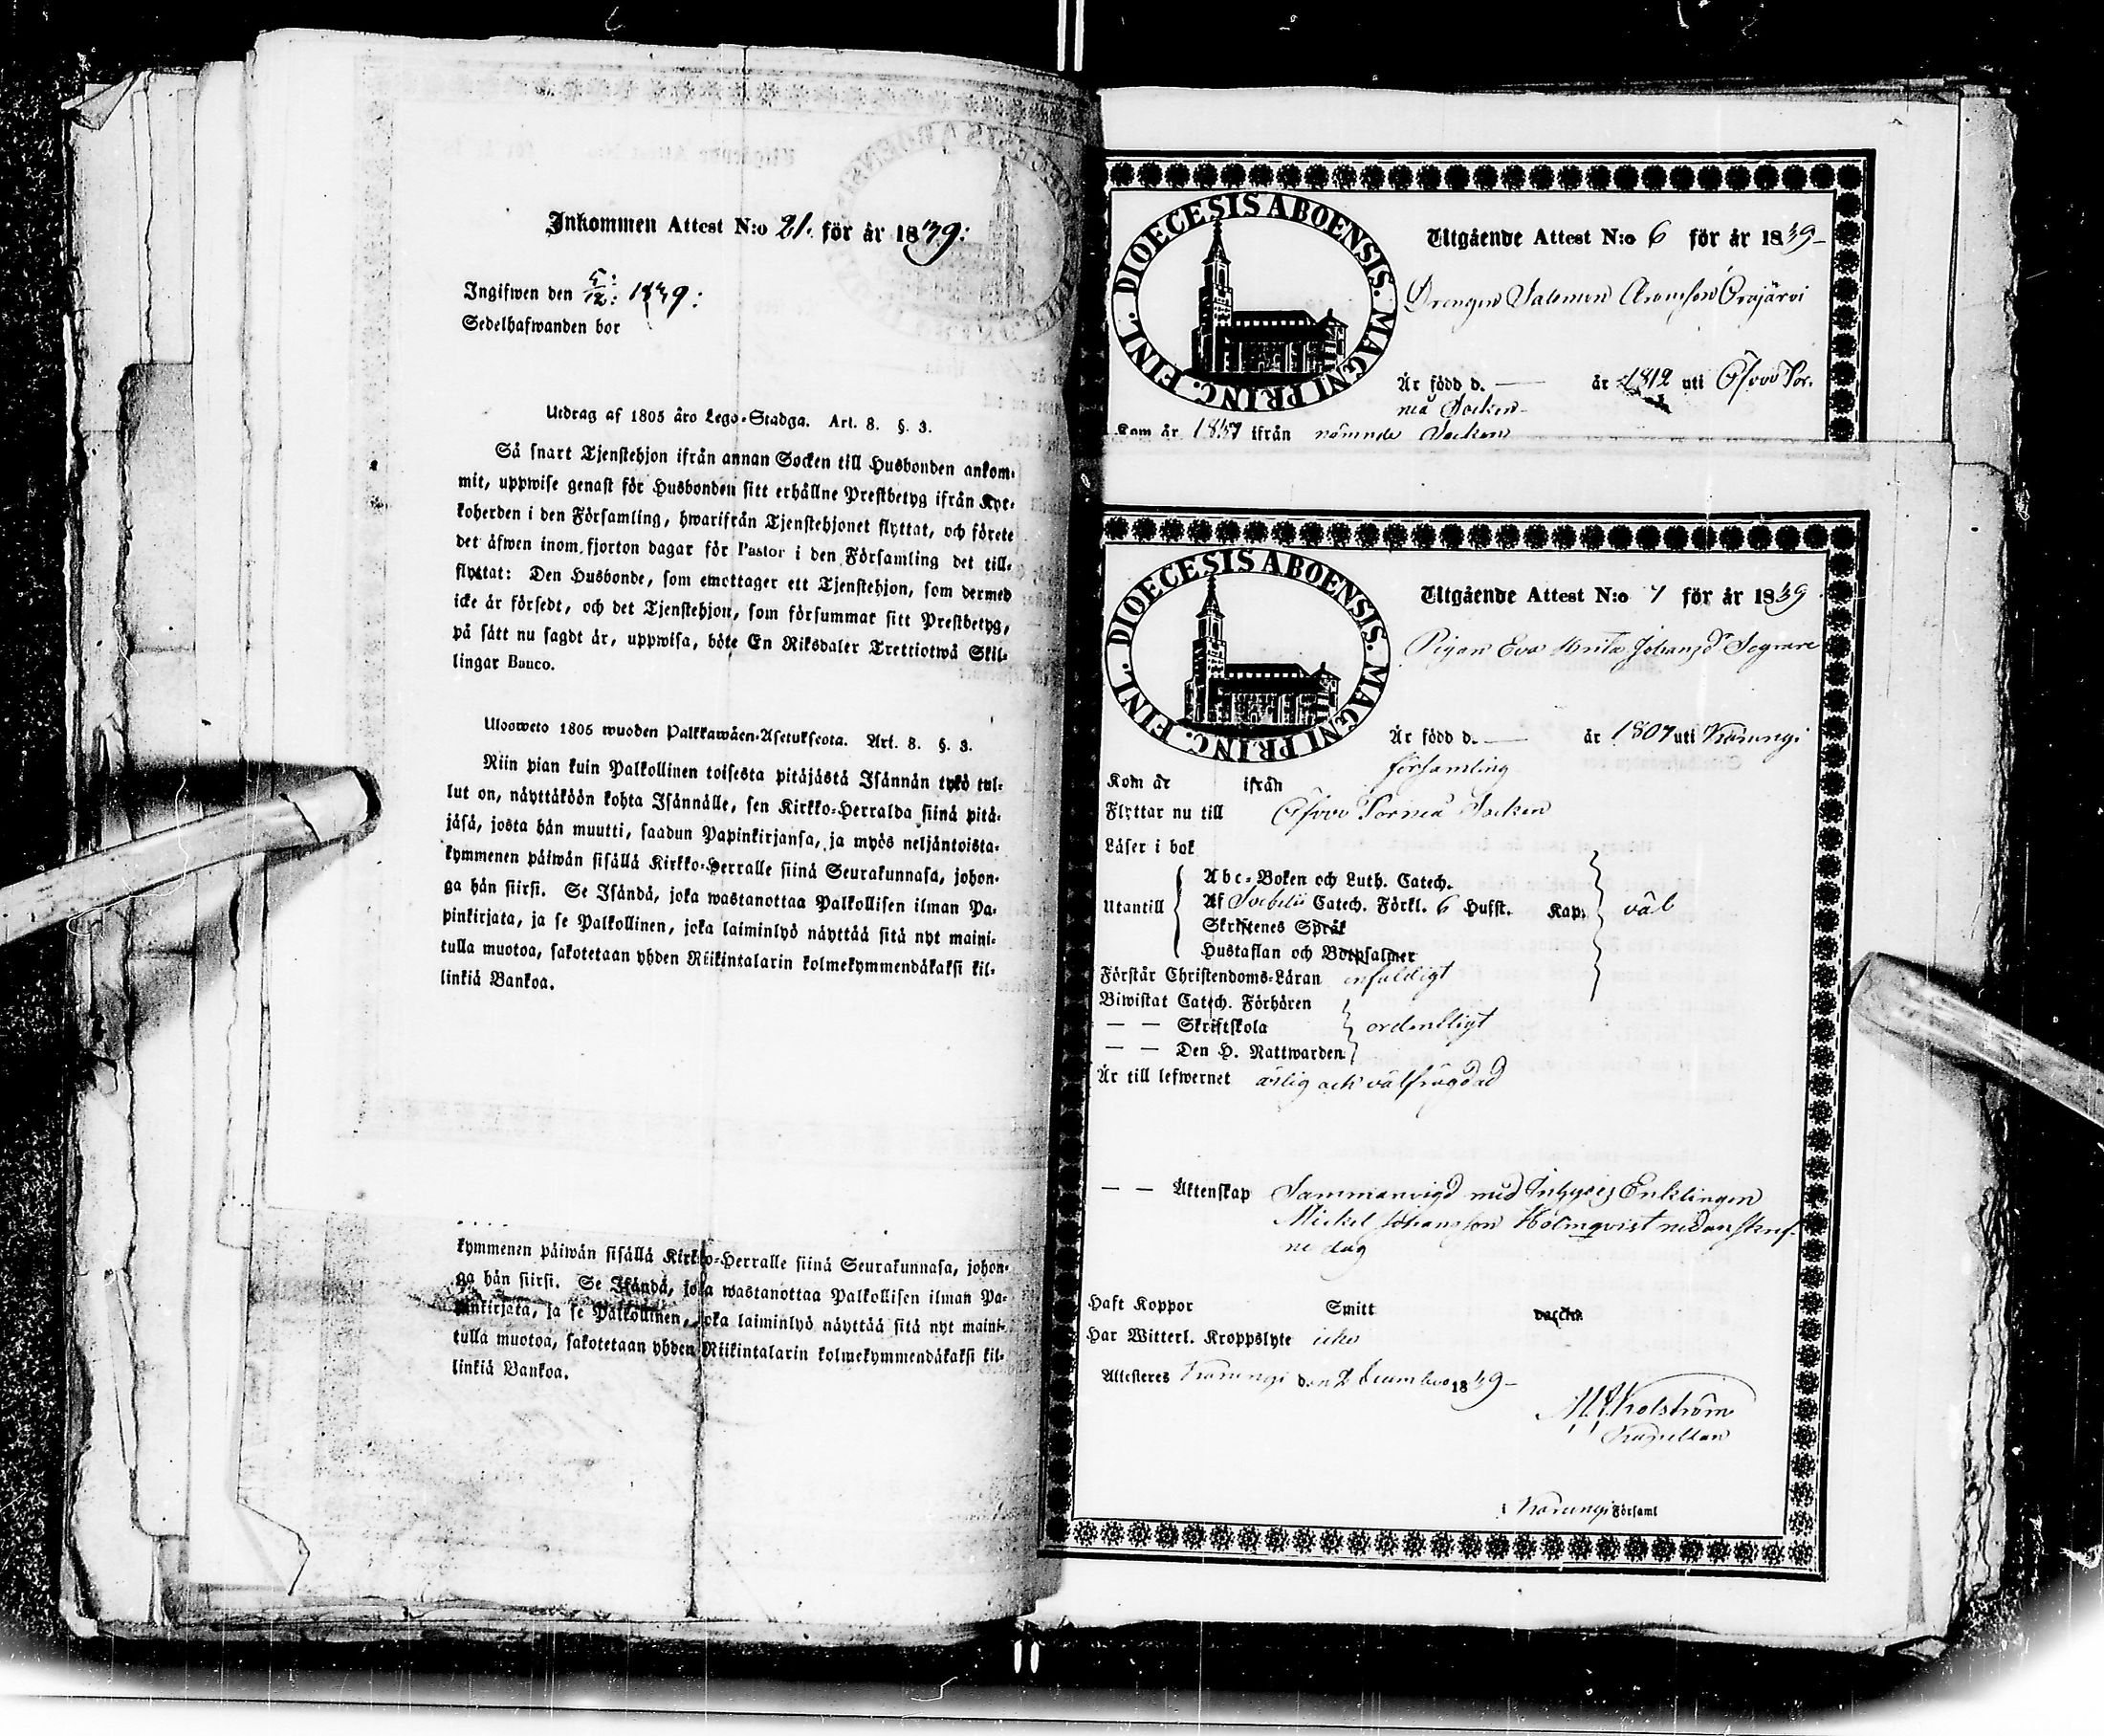 Inkommen Attest N:o 21. för år 1839:
Ingifwen den 5/12: 1839:
Sedelhafwanden bor
Utdrag af 1805 års Lego-Stadga. Art. 8. §. 3.
Så snart Tjenstehjon ifrån annan Socken till Husbonden ankom-
mit, uppwise genast för Husbonden sitt erhållne Prestbetyg ifrån Kyr-
koherden i den Församling, hwarifrån Tjenstehjonet flyttat, och förete
det äfwen inom fjorton dagar för Pastor i den Församling det till-
flyttat: Den Husbonde, som emottager ett Tjenstehjon, som dermed
icke är försedt, och det Tjenstehjon, som försummar sitt Prestbetyg,
på sätt nu sagdt är, uppwisa, böte En Riksdaler Trettiotwå Skil-
lingar Banco.
Ulosweto 1805 wuoden Palkkawäen-Asetuksesta. Art. 8. §. 3.
Niin pian kuin Palkollinen toisesta pitäjästä Isännän tykö tul-
lut on, näyttäköön kohta Isännälle, sen Kirkko-Herralda siinä pitä-
jäsä, josta hän muutti, saadun Papinkirjansa, ja myös neljäntoista-
kymmenen päiwän sisällä Kirkko-Herralle siinä Seurakunnasa, johon-
ga hän siirsi. Se Isändä, joka wastanottaa Palkollisen ilman Pa-
pinkirjata, ja se Palkollinen, joka laiminlyö näyttää sitä nyt maini-
tulla muotoa, sakotetaan yhden Riikintalarin kolmekymmendäkaksi kil-
linkiä Bankoa.
kymmenen päiwän sisällä Kirkko-Herralle siinä Seurakunnasa, johon-
ga hän siirsi. Se Isändä, joka wastanottaa Palkollisen ilman Pa-
pinkirjata, ja se Palkollinen, joka laiminlyö näyttää sitä nyt maini-
tulla muotoa, sakotetaan yhden Riikintalarin kolmekymmendäkaksi kil-
linkiä Bankoa.
DIOECESIS ABOENSIS. MAGNI PRINC. FINL.
Utgående Attest N:o 6 för år 1839
Drengen Salomon Aronsson Orajärvi
Är född d. — år 1812 uti Öfvre Tor-
neå Socken
Kom år 1837 ifrån nämnde Socken
DIOECESIS ABOENSIS. MAGNI PRINC. FINL.
Utgående Attest N:o 7 för år 1839
Pigan Eva Brita Johansd:r
Är född d. — år 1807 uti Karungi
församling
Kom år ifrån
Flyttar nu till Öfver Torneå Socken
Läser i bok
Abc-Boken och Luth. Catech.
Utantill Af Svebelii Catech. Förkl. 6 Hufst. Kap. väl
Skriftenes Språk
Hustaflan och Botpsalmer
Förstår Christendoms-Läran enfaldigt
Biwistat Catech. Förhören
— — Skriftskola ordentligt
— — Den H. Nattwarden
Är till lefwernet ärlig och välfrägdad
— — Äktenskap Sammanvigd med Inhyses Enklingen
Mickel Johansson Holmqvist nedanskref-
ne dag
Haft Koppor Smitt vaccin.
Har Witterl. Kroppslyte icke
Attesteres Karungi den 2 December 1839
Kapellan
i Karungi Församl